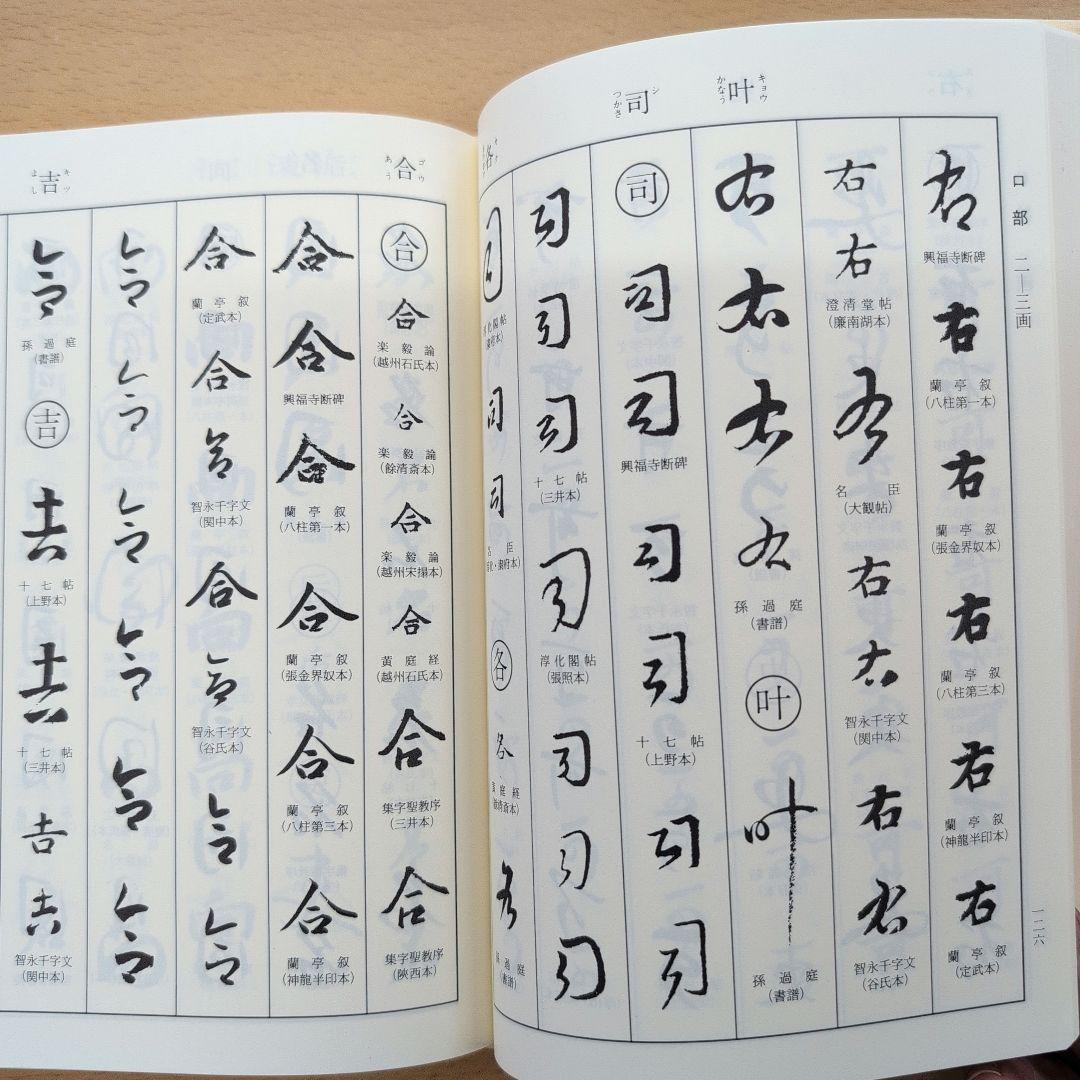 口部 二―三画
一二六
叶 キョウ かなう
司 シ つかさ
各
右
興福寺断碑
右
蘭亭叙
(八柱第一本)
右
蘭亭叙
(張金界奴本)
右
蘭亭叙
(八柱第三本)
右
蘭亭叙
(神龍半印本)
右
蘭亭叙
(定武本)
右
右
澄清堂帖
(廉南湖本)
右
名臣
(大観帖)
右
右
智永千字文
(関中本)
右
右
智永千字文
(谷氏本)
右
右
右
右
孫過庭
(書譜)
叶
叶
孫過庭
(書譜)
司
司
司
興福寺断碑
司
司
十七帖
(上野本)
司
司
司
司
司
十七帖
(三井本)
司
淳化閣帖
(張照本)
司
司
司
司
司
司
各
各
各
孫過庭
(書譜)
合 ゴウ あう
吉 キツ よし
合
合
楽毅論
(越州石氏本)
合
楽毅論
(餘清斎本)
合
楽毅論
(越州宋搨本)
合
黄庭経
(越州石氏本)
合
集字聖教序
(三井本)
合
集字聖教序
(陝西本)
合
合
興福寺断碑
合
蘭亭叙
(八柱第一本)
合
蘭亭叙
(張金界奴本)
合
蘭亭叙
(八柱第三本)
合
蘭亭叙
(神龍半印本)
合
蘭亭叙
(定武本)
合
合
智永千字文
(関中本)
合
合
智永千字文
(谷氏本)
合
合
合
合
合
合
合
合
合
孫過庭
(書譜)
吉
吉
十七帖
(上野本)
吉
十七帖
(三井本)
吉
吉
智永千字文
(関中本)